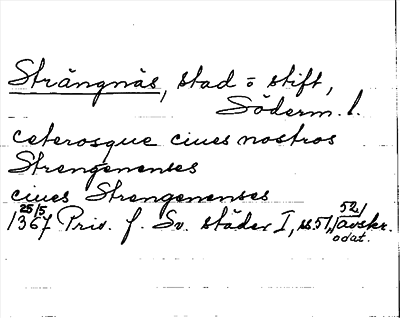 Strängnäs, stad o stift,
Söderm. l.
ceterosque ciues nostros
Strengenenses
ciues Strengenenses
25/5 1367 Priv. f. Sv. städer I, ss. 51, 52, /avskr.
odat.